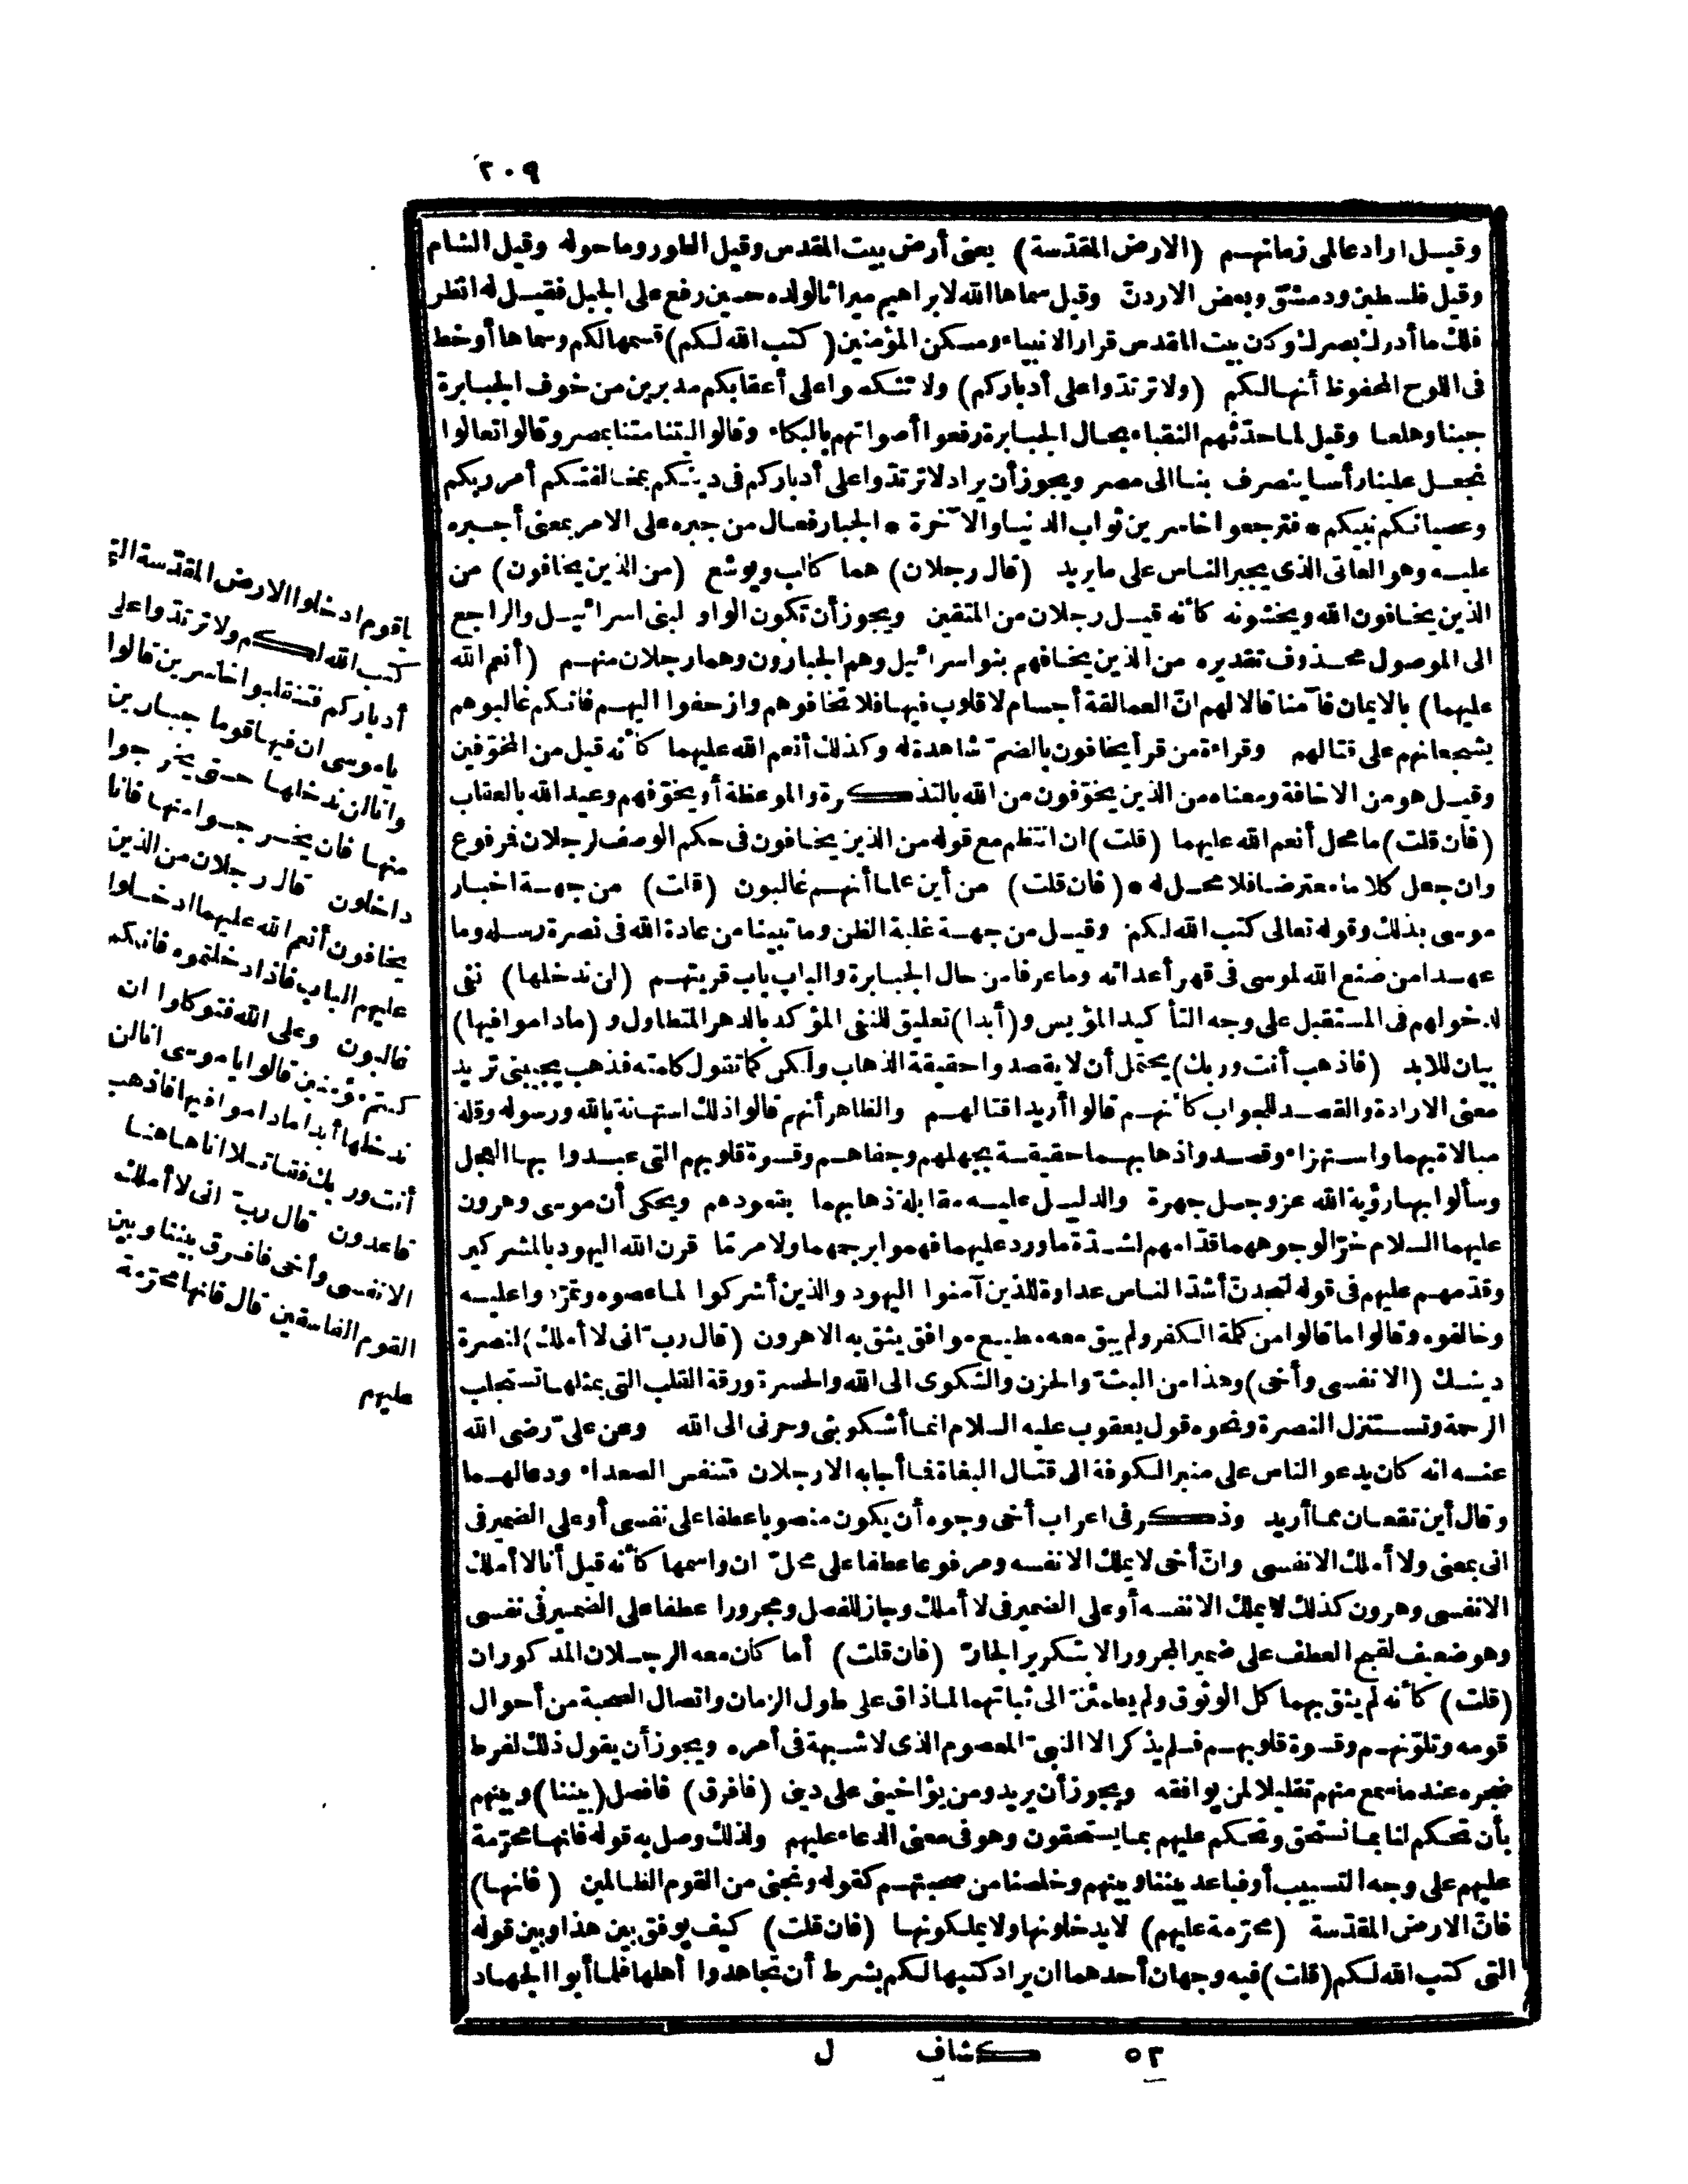 ٢٠٩
وقيل اراد عالمى زمانهم (الارض المقدّسة) يعنى أرض بيت المقدس وقيل الطور وما حوله وقيل الشام
وقيل فلسطين ودمشق وبعض الاردنّ وقيل سماها الله لابراهيم ميراثا لولده حين رفع على الجبل فقيل له انظر
فلك ما أدرك بصرك وكان بيت المقدس قرار الانبياء ومسكن المؤمنين (كتب الله لكم) قسمها لكم وسماها أو خط
فى اللوح المحفوظ أنها لكم (ولا ترتدّوا على أدباركم) ولا تنكصوا على أعقابكم مدبرين من خوف الجبابرة
جبنا وهلعا وقيل لما حدّثهم النقباء بحال الجبابرة رفعوا أصواتهم بالبكاء وقالوا ليتنا متنا بمصر وقالوا تعالوا
نجعل علينا رأسا ينصرف بنا الى مصر ويجوز أن يراد لا ترتدّوا على أدباركم فى دينكم بمخالفتكم أمر ربكم
وعصيانكم نبيكم * فترجعوا خاسرين ثواب الدنيا والآخرة * الجبار فعال من جبره على الامر بمعنى أجبره
عليه وهو العاتى الذى يجبر الناس على ما يريد (قال رجلان) هما كالب ويوشع (من الذين يخافون) من
الذين يخافون الله ويخشونه كأنه قيل رجلان من المتقين ويجوز أن تكون الواو لبنى اسرائيل والراجع
الى الموصول محذوف تقديره من الذين يخافهم بنو اسرائيل وهم الجبارون وهما رجلان منهم (أنعم الله
عليهما) بالايمان فآمنا قالا لهم انّ العمالقة أجسام لا قلوب فيها فلا تخافوهم وازحفوا اليهم فانكم غالبوهم
يشجعانهم على قتالهم وقراءة من قرأ يخافون بالضمّ شاهدة له وكذلك أنعم الله عليهما كأنه قيل من المخوّفين
وقيل هو من الاخافة ومعناه من الذين يخوّفون من الله بالتذكرة والموعظة أو يخوّفهم وعيد الله بالعقاب
(فان قلت) ما محل أنعم الله عليهما (قلت) ان انتظم مع قوله من الذين يخافون فى حكم الوصف لرجلان فمرفوع
وان جعل كلاما معترضا فلا محل له * (فان قلت) من أين علما أنهم غالبون (قلت) من جهة اخبار
موسى بذلك وقوله تعالى كتب الله لكم وقيل من جهة غلبة الظن وما تبينا من عادة الله فى نصرة رسله وما
عهدا من صنع الله لموسى فى قهر أعدائه وما عرفا من حال الجبابرة والباب باب قريتهم (لن ندخلها) نفى
لدخولهم فى المستقبل على وجه التأكيد المؤيس و(أبدا) تعليق للنفى المؤكد بالدهر المتطاول و(ما داموا فيها)
بيان للابد (فاذهب أنت وربك) يحتمل أن لا يقصدوا حقيقة الذهاب ولكن كما تقول كلمته فذهب يجيبنى تريد
معنى الارادة والقصد للجواب كأنهم قالوا أريدا قتالهم والظاهر أنهم قالوا ذلك استهانة بالله ورسوله وقلة
مبالاة بهما واستهزاء وقصدوا ذهابهما حقيقة بجهلهم وجفاهم وقسوة قلوبهم التى عبدوا بها العجل
وسألوا بها رؤية الله عز وجل جهرة والدليل عليه مقابلة ذهابهما بقعودهم ويحكى أن موسى وهرون
عليهما السلام خرّا لوجوههما قدّامهم لشدّة ما ورد عليهما فهموا برجمهما ولامر مّا قرن الله اليهود بالمشركين
وقدّمهم عليهم فى قوله لتجدنّ أشدّ الناس عداوة للذين آمنوا اليهود والذين أشركوا لما عصوه وتمرّدوا عليه
وخالفوه وقالوا ما قالوا من كلمة الكفر ولم يبق معه مطيع موافق يثق به الا هرون (قال ربّ انى لا أملك) لنصرة
دينك (الا نفسى وأخى) وهذا من البثّ والحزن والشكوى الى الله والحسرة ورقة القلب التى بمثلها تستجلب
الرحمة وتستنزل النصرة ونحوه قول يعقوب عليه السلام انما أشكو بثى وحزنى الى الله وعن علىّ رضى الله
عنه انه كان يدعو الناس على منبر الكوفة الى قتال البغاة فما أجابه الا رجلان فتنفس الصعداء ودعا لهما
وقال أين تقعان مما أريد وذكر فى اعراب أخى وجوه أن يكون منصوبا عطفا على نفسى أو على الضمير فى
انى بمعنى ولا أملك الا نفسى وانّ أخى لا يملك الا نفسه ومرفوعا عطفا على محلّ ان واسمها كأنه قيل أنا لا أملك
الا نفسى وهرون كذلك لا يملك الا نفسه أو على الضمير فى لا أملك وجاز للفصل ومجرورا عطفا على الضمير فى نفسى
وهو ضعيف لقبح العطف على ضمير المجرور الا بتكرير الجارّ (فان قلت) أما كان معه الرجلان المذكوران
(قلت) كأنه لم يثق بهما كل الوثوق ولم يطمئنّ الى ثباتهما لما ذاق على طول الزمان واتصال الصحبة من أحوال
قومه وتلوّنهم وقسوة قلوبهم فلم يذكر الا النبىّ المعصوم الذى لا شبهة فى أمره ويجوز أن يقول ذلك لفرط
ضجره عند ما سمع منهم تقليلا لمن يوافقه ويجوز أن يريد ومن يؤاخينى على دينى (فافرق) فافصل (بيننا) وبينهم
بأن تحكم لنا بما نستحق وتحكم عليهم بما يستحقون وهو فى معنى الدعاء عليهم ولذلك وصل به قوله فانها محرّمة
عليهم على وجه التسبيب أو فباعد بيننا وبينهم وخلصنا من صحبتهم كقوله ونجنى من القوم الظالمين (فانها)
فانّ الارض المقدّسة (محرّمة عليهم) لا يدخلونها ولا يملكونها (فان قلت) كيف يوفق بين هذا وبين قوله
التى كتب الله لكم (قلت) فيه وجهان أحدهما ان يراد كتبها لكم بشرط أن تجاهدوا أهلها فلما أبوا الجهاد
ياقوم ادخلوا الارض المقدّسة التى
كتب الله لكم ولا ترتدّوا على
أدباركم فتنقلبوا خاسرين قالوا
يا موسى ان فيها قوما جبارين
وانا لن ندخلها حتى يخرجوا
منها فان يخرجوا منها فانا
داخلون قال رجلان من الذين
يخافون أنعم الله عليهما ادخلوا
عليهم الباب فاذا دخلتموه فانكم
غالبون وعلى الله فتوكلوا ان
كنتم مؤمنين قالوا يا موسى انا لن
ندخلها أبدا ما داموا فيها فاذهب
أنت وربك فقاتلا انا هاهنا
قاعدون قال ربّ انى لا أملك
الا نفسى وأخى فافرق بيننا وبين
القوم الفاسقين قال فانها محرّمة
عليهم
٥٢ كشاف ل